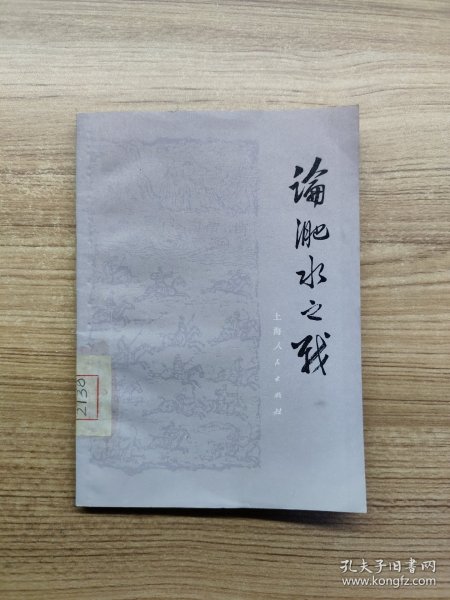 論淝水之战
上海人民出版社
2130
孔夫子旧书网
www.kongfz.com